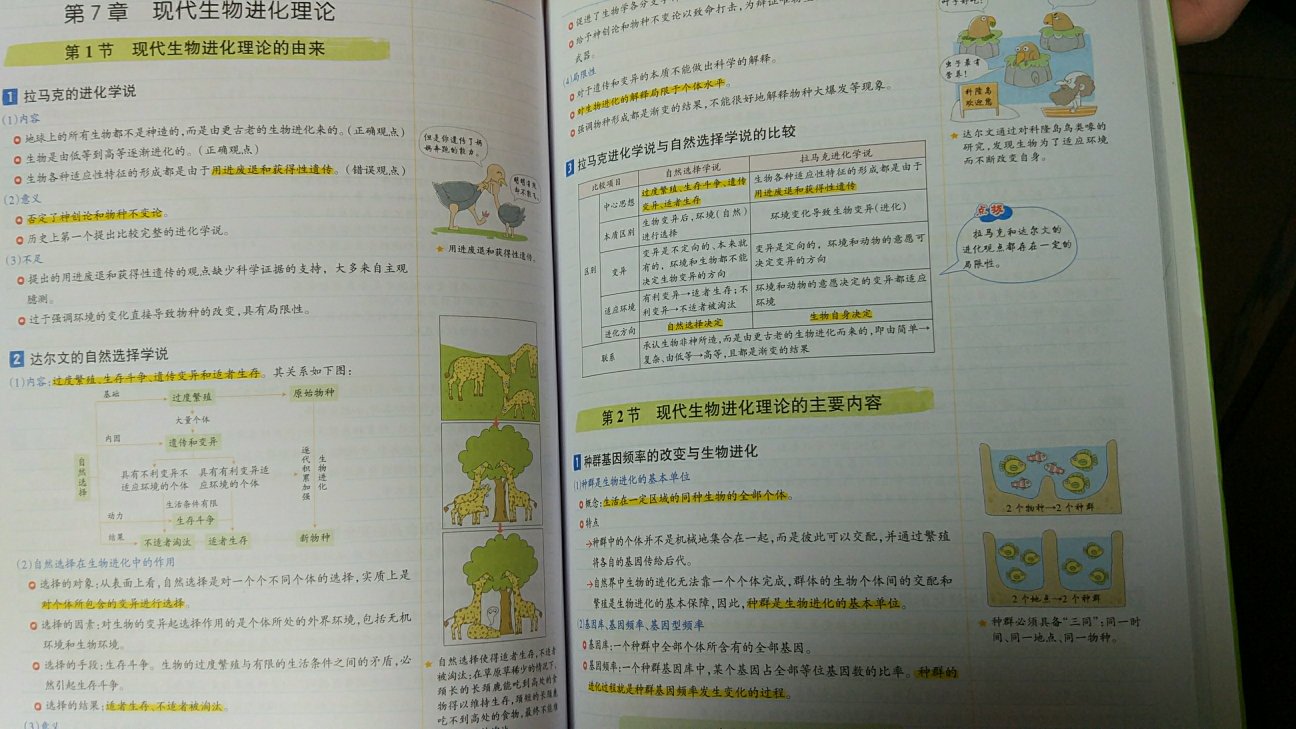 第7章 现代生物进化理论
第1节 现代生物进化理论的由来
1 拉马克的进化学说
(1)内容
地球上的所有生物都不是神造的,而是由更古老的生物进化来的。(正确观点)
生物是由低等到高等逐渐进化的。(正确观点)
生物各种适应性特征的形成都是由于用进废退和获得性遗传。(错误观点)
(2)意义
否定了神创论和物种不变论。
历史上第一个提出比较完整的进化学说。
(3)不足
提出的用进废退和获得性遗传的观点缺少科学证据的支持,大多来自主观
臆测。
过于强调环境的变化直接导致物种的改变,具有局限性。
但是你遗传了妈
妈奔跑的能力。
★ 用进废退和获得性遗传。
2 达尔文的自然选择学说
(1)内容:过度繁殖、生存斗争、遗传变异和适者生存。其关系如下图:
基础 过度繁殖 原始物种
大量个体
内因 遗传和变异
自然选择
具有不利变异不 具有有利变异适
适应环境的个体 应环境的个体
逐代积累加强
生物进化
生活条件有限
动力 生存斗争
结果 不适者淘汰 适者生存 新物种
(2)自然选择在生物进化中的作用
选择的对象:从表面上看,自然选择是对一个个不同个体的选择,实质上是
对个体所包含的变异进行选择。
选择的因素:对生物的变异起选择作用的是个体所处的外界环境,包括无机
环境和生物环境。
选择的手段:生存斗争。生物的过度繁殖与有限的生活条件之间的矛盾,必
然引起生存斗争。
选择的结果:适者生存、不适者被淘汰。
(3)意义
★ 自然选择使得适者生存,不适者
被淘汰:在草原草稀少的情况下,
颈长的长颈鹿能吃到高处的食
物得以维持生存,颈短的长颈鹿
吃不到高处的食物,最终不能维
促进了生物学各分支学
给予神创论和物种不变论以致命打击,为辩证唯物
武器。
(4)局限性
对于遗传和变异的本质不能做出科学的解释。
对生物进化的解释局限于个体水平。
强调物种形成都是渐变的结果,不能很好地解释物种大爆发等现象。
虫子最有
营养!
科隆岛
欢迎您
★ 达尔文通过对科隆岛鸟类喙的
研究,发现生物为了适应环境
而不断改变自身。
3 拉马克进化学说与自然选择学说的比较
比较项目 自然选择学说 拉马克进化学说
区别
中心思想 过度繁殖、生存斗争、遗传变异、适者生存 生物各种适应性特征的形成都是由于用进废退和获得性遗传
本质区别 生物变异后,环境(自然)进行选择 环境变化导致生物变异(进化)
变异 变异是不定向的、本来就有的,环境和生物都不能决定生物变异的方向 变异是定向的,环境和动物的意愿可决定变异的方向
适应环境 有利变异→适者生存;不利变异→不适者被淘汰 环境和动物的意愿决定的变异都适应环境
进化方向 自然选择决定 生物自身决定
联系 承认生物非神所造,而是由更古老的生物进化而来的,即由简单→
复杂、由低等→高等,且都是渐变的结果
点拨
拉马克和达尔文的
进化观点都存在一定的
局限性。
第2节 现代生物进化理论的主要内容
1 种群基因频率的改变与生物进化
(1)种群是生物进化的基本单位
概念:生活在一定区域的同种生物的全部个体。
特点
→种群中的个体并不是机械地集合在一起,而是彼此可以交配,并通过繁殖
将各自的基因传给后代。
→自然界中生物的进化无法靠一个个体完成,群体的生物个体间的交配和
繁殖是生物进化的基本保障,因此,种群是生物进化的基本单位。
(2)基因库、基因频率、基因型频率
基因库:一个种群中全部个体所含有的全部基因。
基因频率:一个种群基因库中,某个基因占全部等位基因数的比率。种群的
进化过程就是种群基因频率发生变化的过程。
2个物种→2个种群
2个地点→2个种群
★ 种群必须具备“三同”:同一时
间、同一地点、同一物种。